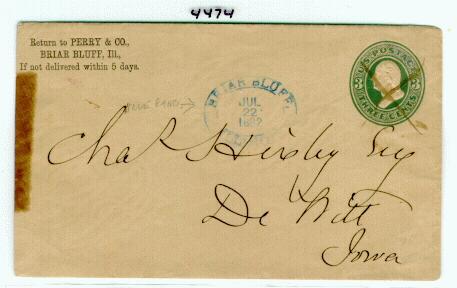 4474
Return to PERRY & CO.,
BRIAR BLUFF, Ill.,
If not delivered within 5 days.
BRIAR BLUFF,
JUL
22
1882
U.S. POSTAGE
3 3
THREE CENTS
Chas Esq
De Witt
Iowa